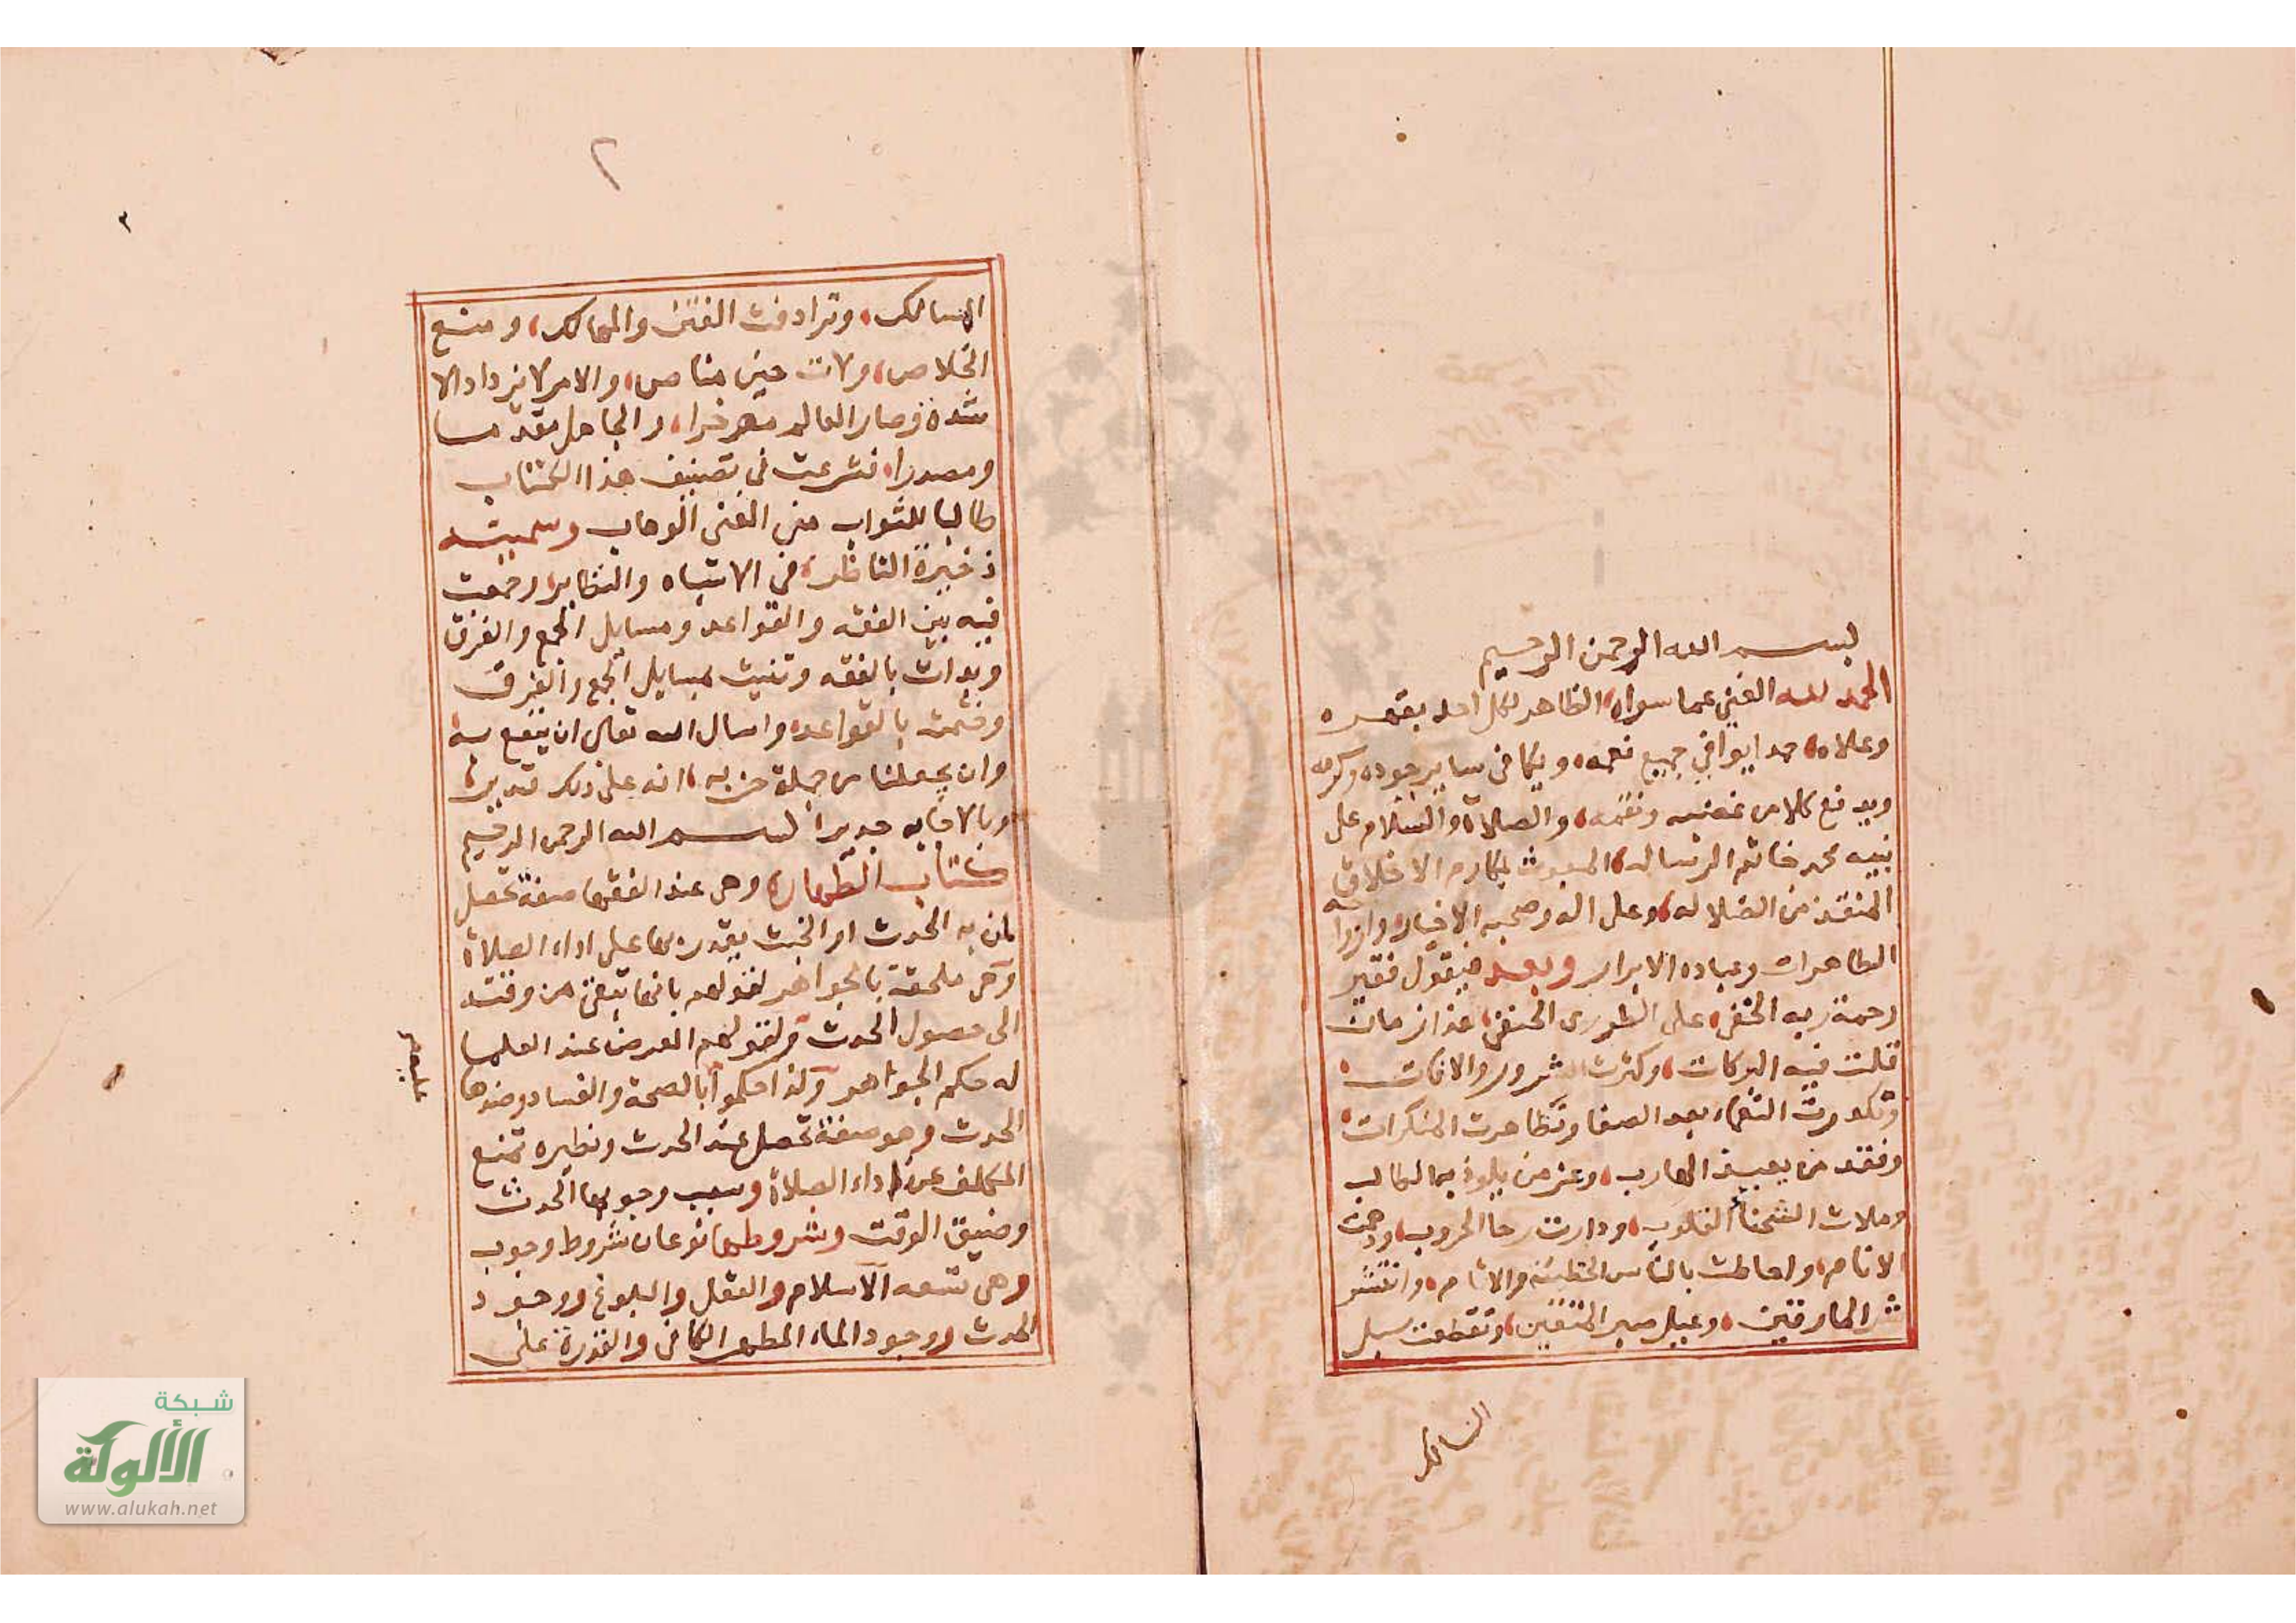 بسم الله الرحمن الرحيم
الحمد لله الغني عما سواه الظاهر لكل احد بقهره
وعلاه حمدا يوافي جميع نعمه ويكافي ساير جوده وكرمه
ويدفع كلا من غضبه ونقمه والصلاة والسلام على
نبيه محمد خاتم الرساله المبعوث بمكارم الاخلاق
المنقذ من الضلاله وعلى اله وصحبه الاخيار وازواجه
الطاهرات وعباده الابرار وبعد فيقول فقير
رحمة ربه الخفي على الطوري الحنفي هذا زمان
قلت فيه البركات وكثرت الشرور والافات
وتكدرت النعماء بعد الصفا وتظاهرت المنكرات
وفقد من يعيذ الهارب وعز من يلوذ به الطالب
وملات الشحنأ القلوب ودارت رحا الحروب
الانام واحاطت بالناس الخطيئه والاثام وانتشر
شر المارقين وعيل صبر المتقين وتقطعت سبل
المسالك
٢
٢
المسالك وترادفت الفتن والمهالك ومنع
الخلاص ولات حين مناص والامر لا يزداد الا
شدة وصار العالم موخرا والجاهل مقدما
ومصدرا فشرعت في تصنيف هذا الكتاب
طالبا للثواب من الغني الوهاب وسميته
ذخيرة الناظر في الاشباه والنظاير وجمعت
فيه بين الفقه والقواعد ومسايل الجمع والفرق
وبدات بالفقه وثنيت بمسايل الجمع والفرق
وختمت بالقواعد واسال الله تعالى ان ينفع به
وان يجعلنا من جملة حزبه انه على ذلك قدير
وبالاجابه جديرا بسم الله الرحمن الرحيم
كتاب الطهارة وهي عند الفقها صفة تحصل
لمن به الحدث او الخبث يقدر بها على اداء الصلاة
وهي ملحقة بالجواهر لقولهم بانها تبقى من وقته
الى حصول الحدث ولقولهم العرض عند العلما
له حكم الجواهر ولذا حكموا بالصحة والفساد وضدها
الحدث وهو صفة تحصل عند الحدث ونظيره تمنع
المكلف عن اداء الصلاة وسبب وجوبها الحدث
وضيق الوقت وشروطها نوعان شروط وجوب
وهي تسعه الاسلام والعقل والبلوغ ووجود
الحدث ووجود الماء المطهر الكافي والقدرة على
شبكة
الألوكة
www.alukah.net